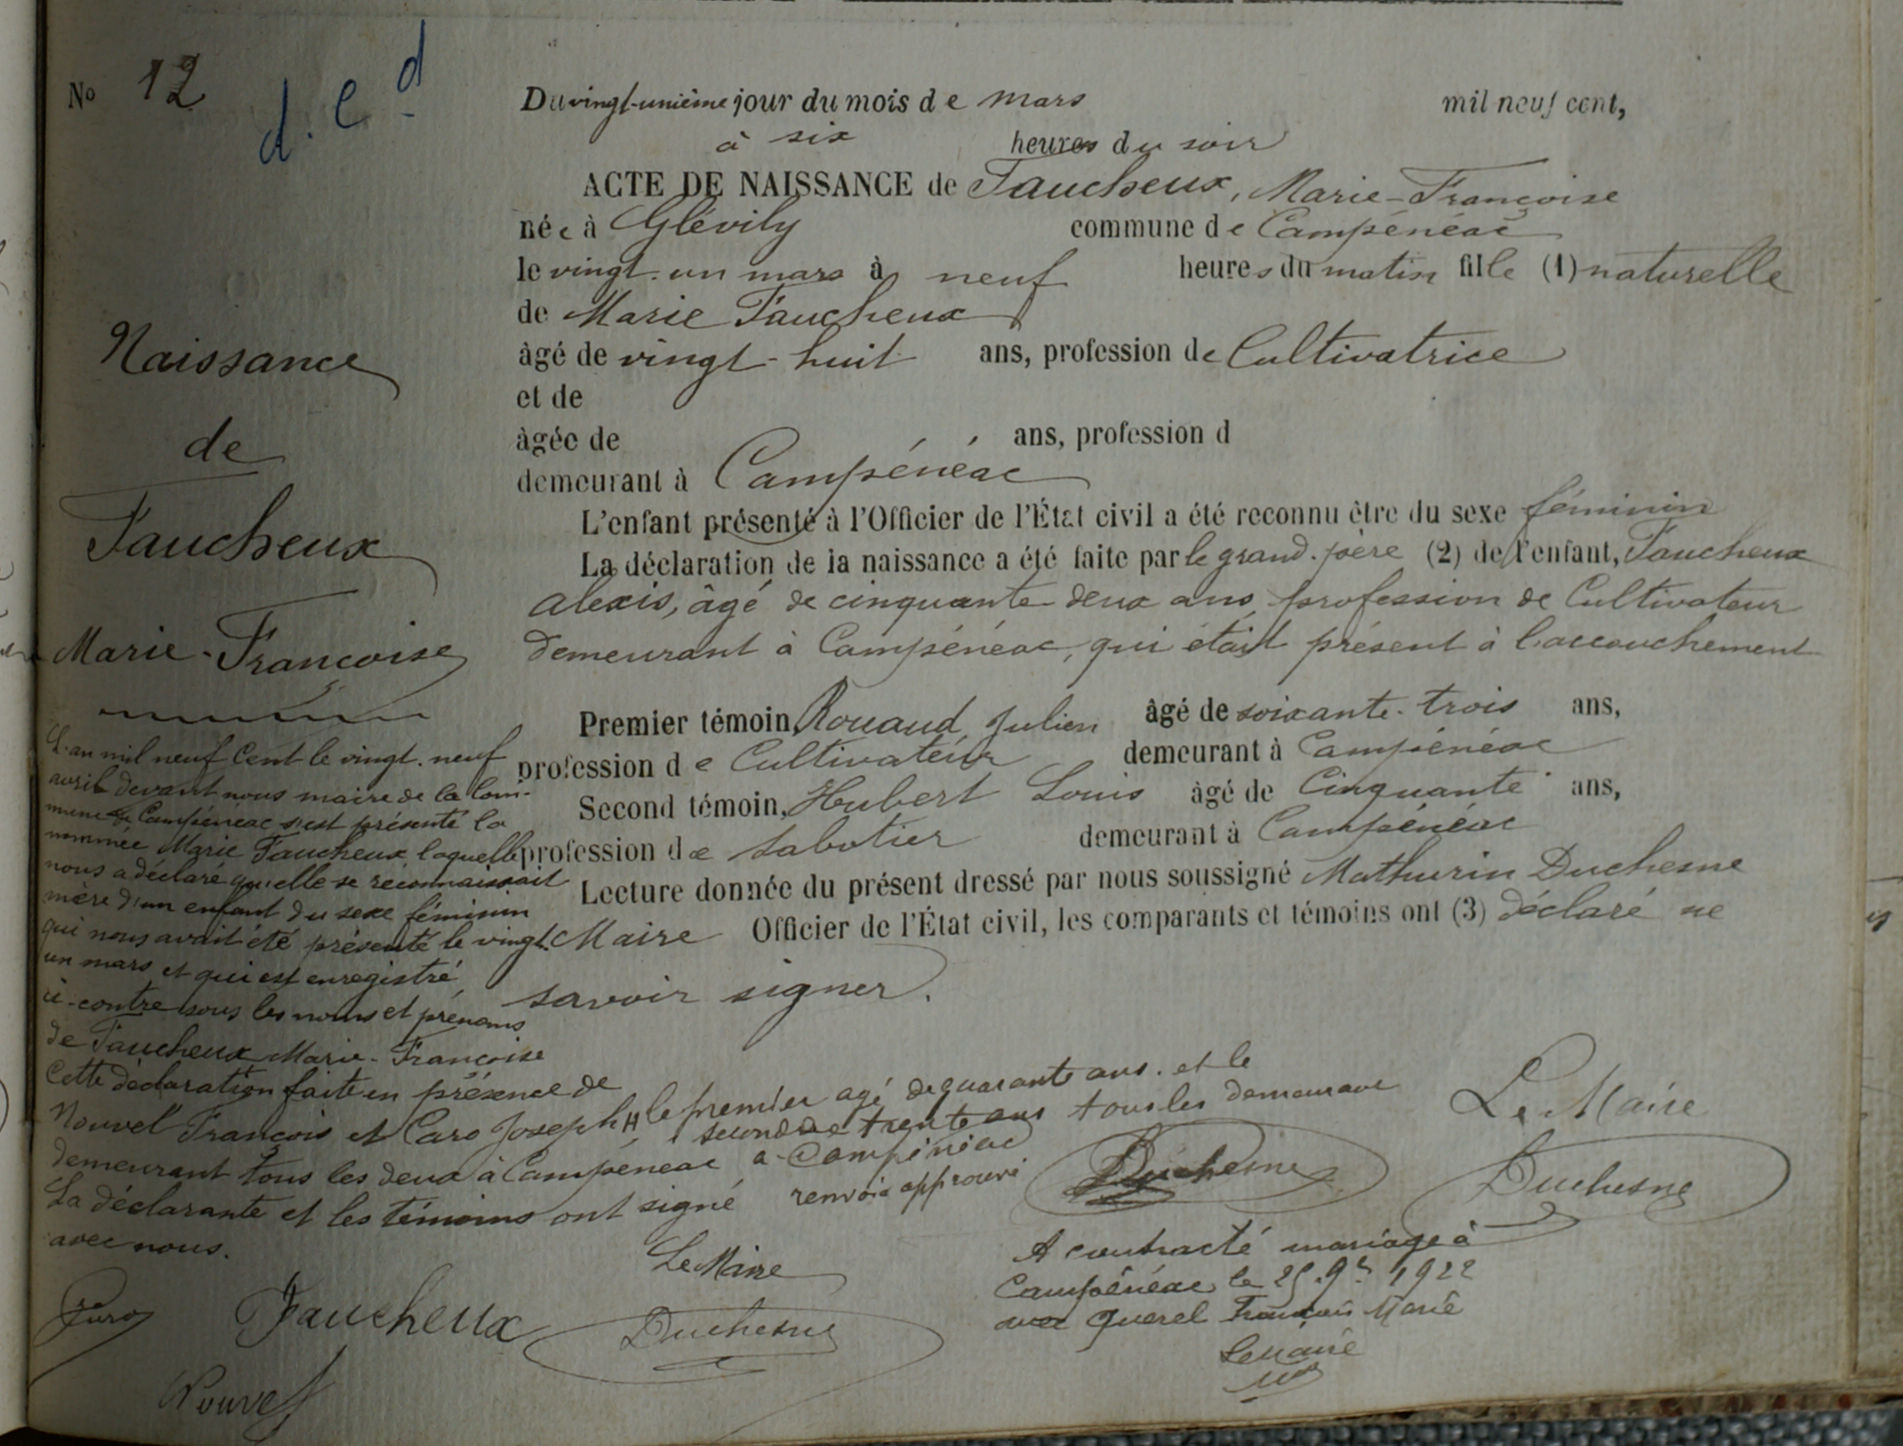 No 12
d. e d
Naissance
de
Faucheux
Marie-Françoise
Du vingt-unième jour du mois de mars mil neuf cent,
à six heures du soir
ACTE DE NAISSANCE de Faucheux, Marie-Françoise
née à Glévily commune de Campénéac
le vingt-un mars à neuf heures du matin fille (1) naturelle
de Marie Faucheux
âgé de vingt-huit ans, profession de Cultivatrice
et de
âgée de ans, profession d
demeurant à Campénéac
L'enfant présenté à l'Officier de l'État civil a été reconnu être du sexe féminin
La déclaration de la naissance a été faite par le grand-père (2) de l'enfant, Faucheux
Alexis, âgé de cinquante-deux ans, profession de Cultivateur
demeurant à Campénéac, qui était présent à l'accouchement
Premier témoin, Rouaud Julien âgé de soixante-trois ans,
profession de Cultivateur demeurant à Campénéac
Second témoin, Hubert Louis âgé de Cinquante ans,
profession de Sabotier demeurant à Campénéac
Lecture donnée du présent dressé par nous soussigné Mathurin Duchesne
Maire Officier de l'État civil, les comparants et témoins ont (3) déclaré ne
savoir signer.
Le Maire
Duchesne
L'an mil neuf cent le vingt-neuf
avril devant nous maire de la Com-
mune de Campénéac s'est présenté la
nommée Marie Faucheux, laquelle
nous a déclaré qu'elle se reconnaissait
mère d'un enfant du sexe féminin
qui nous avait été présenté le vingt-
un mars et qui est enregistré
ci-contre sous les noms et prénoms
de Faucheux Marie-Françoise
Cette déclaration faite en présence de
Nouvel François et Caro Joseph # le premier agé de quarante ans. et le
second de trente ans tous les demeurant
demeurant tous les deux à Campénéac a Campénéac
La déclarante et les témoins ont signé renvoi approuvé
avec nous.
Duchesne
Le Maire
Caro Faucheux Duchesne
Nouvel
A contracté mariage à
Campénéac le 25 9bre 1922
avec Querel François Marie
Le maire